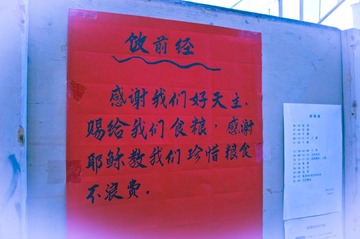 饭前经
感谢我们好天主，
赐给我们食粮，感谢
耶稣教我们珍惜粮食
不浪费．